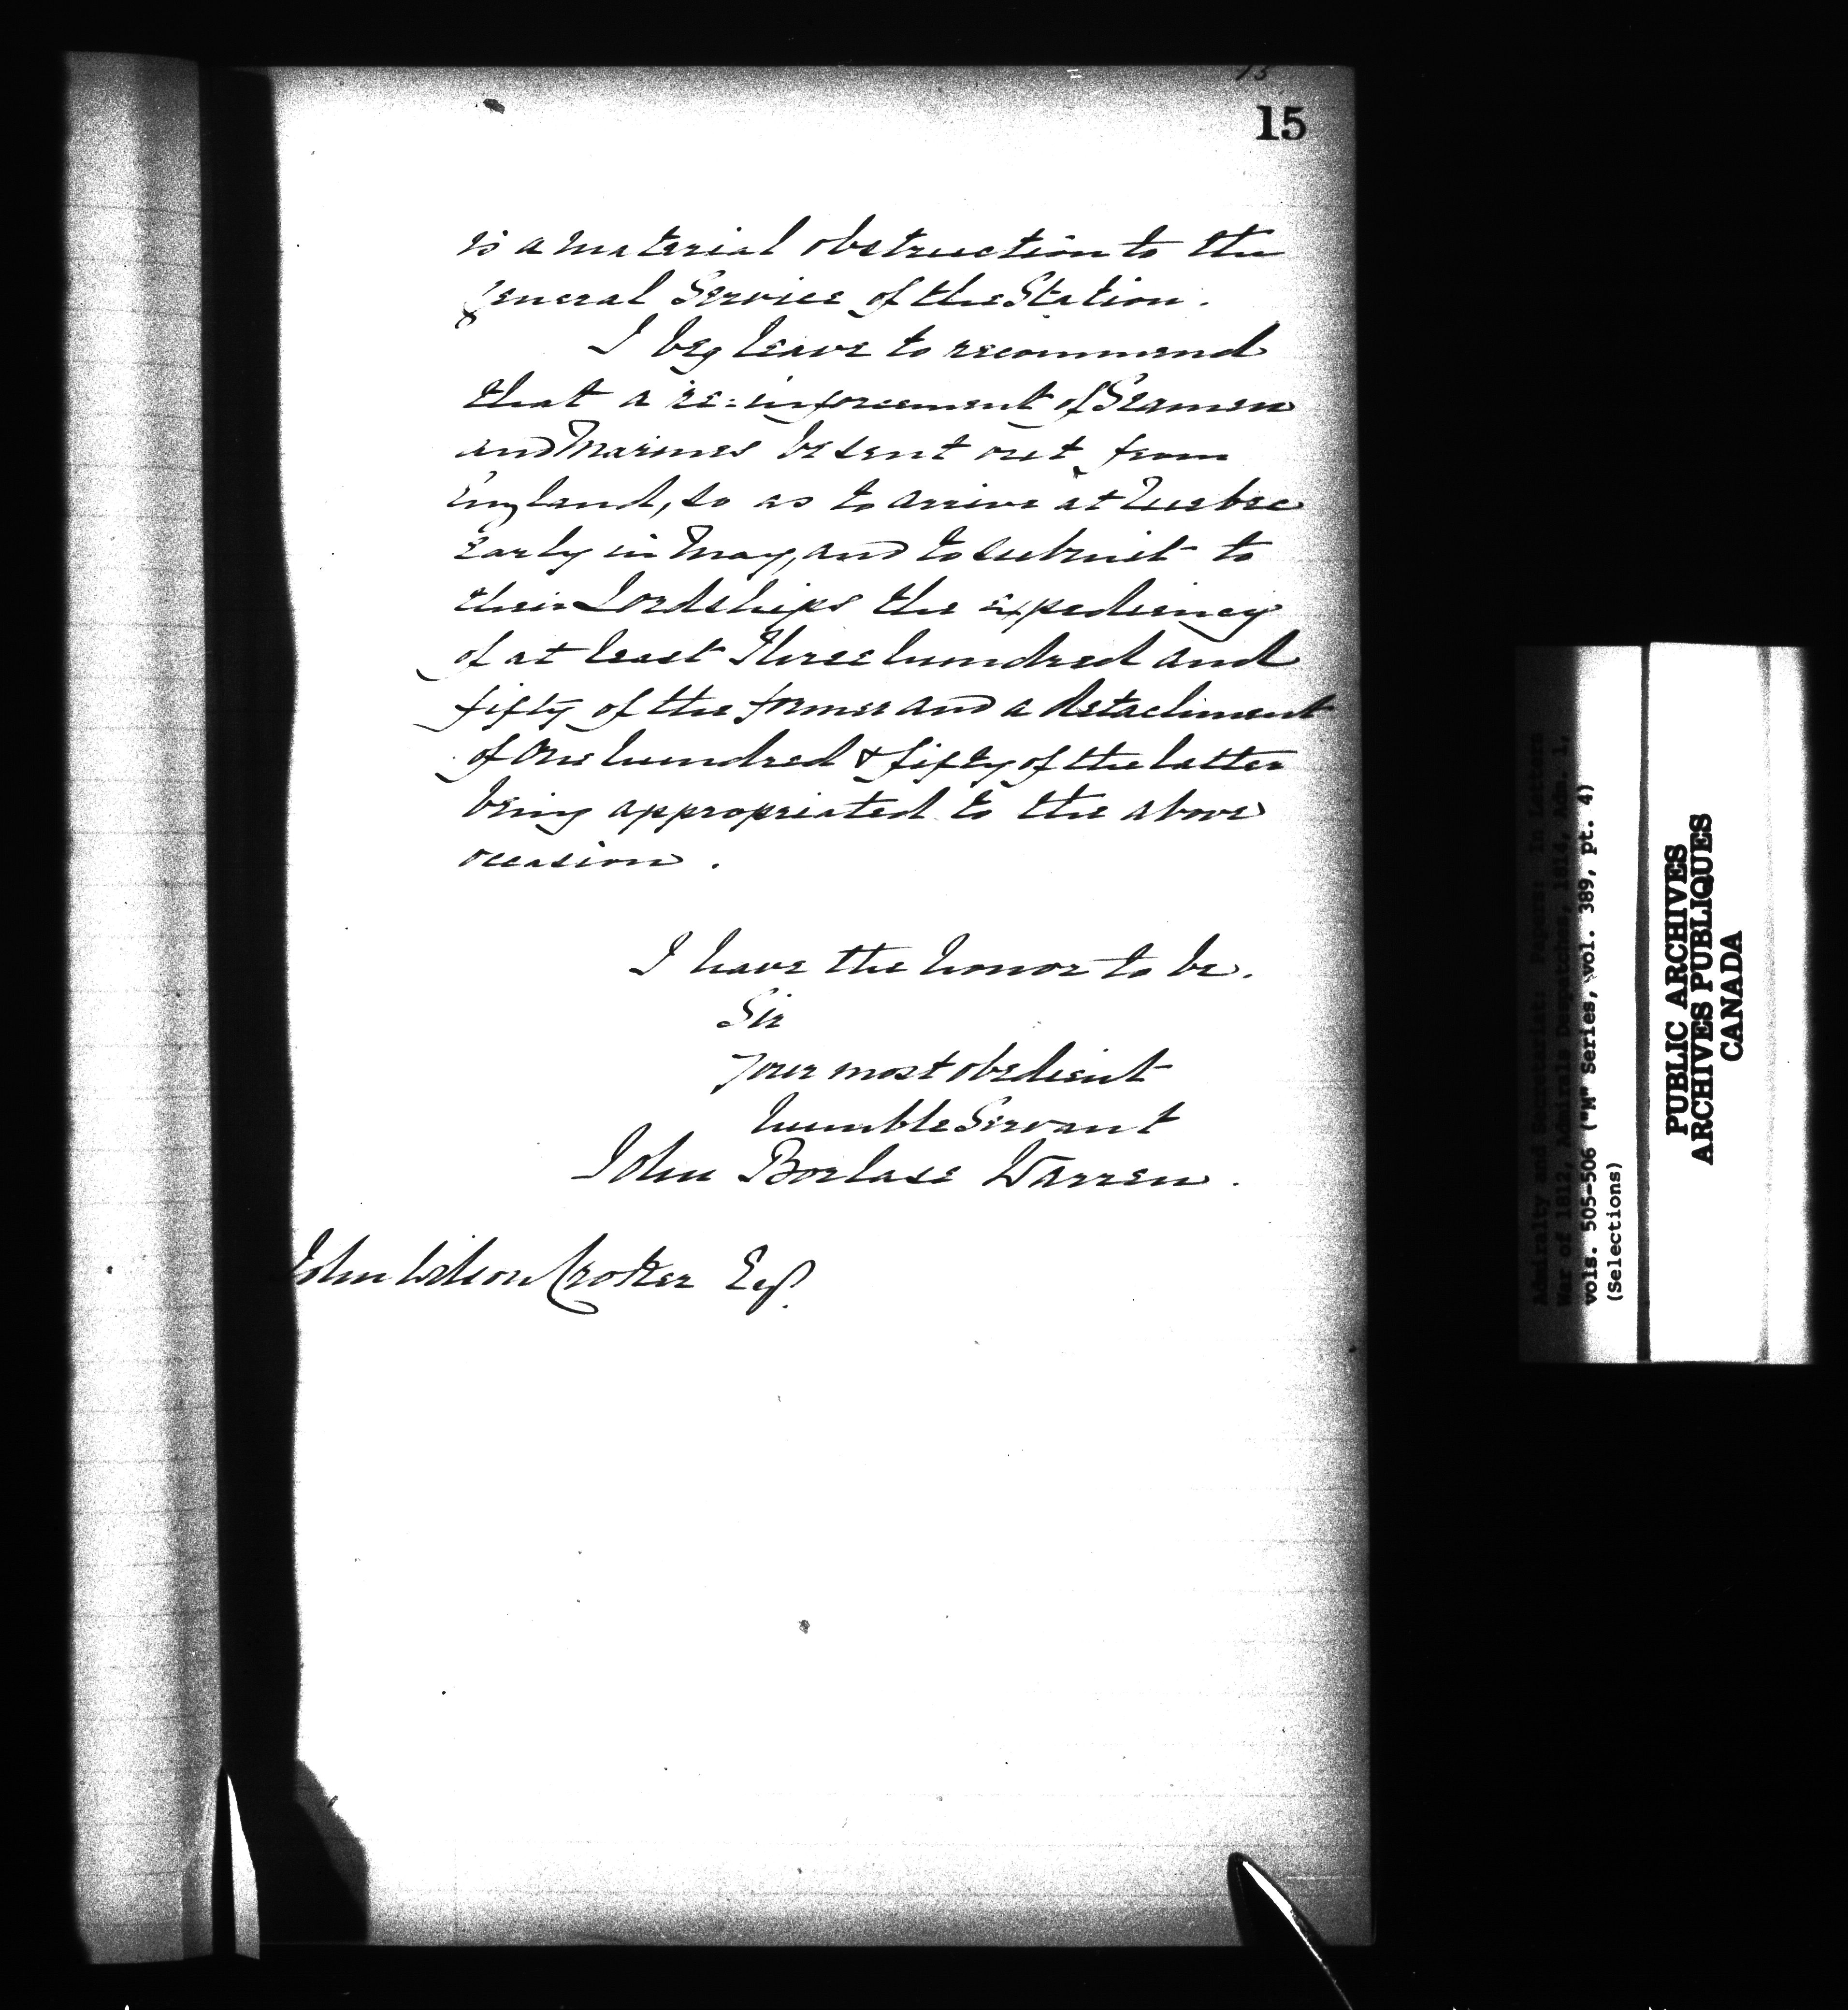 15
is a material obstruction to the
general Service of the Station.
I beg leave to recommend
that a re:inforcement of Seamen
and Marines be sent out from
England, so as to arrive at Quebec
Early in May, and to submit to
their Lordships the expediency
of at least Three hundred and
fifty of the former and a detachment
of One hundred & fifty of the latter
being appropriated to the above
occasion.
I have the honor to be.
Sir
Your most obedient
humble Servant
John Borlase Warren.
John Wilson Croker Esqr.
Admiralty and Secretariat: Papers: In Letters
War of 1812, Admirals Despatches, 1814, Adm. 1,
vols. 505-506 ("M" Series, vol. 389, pt. 4)
(Selections)
PUBLIC ARCHIVES
ARCHIVES PUBLIQUES
CANADA